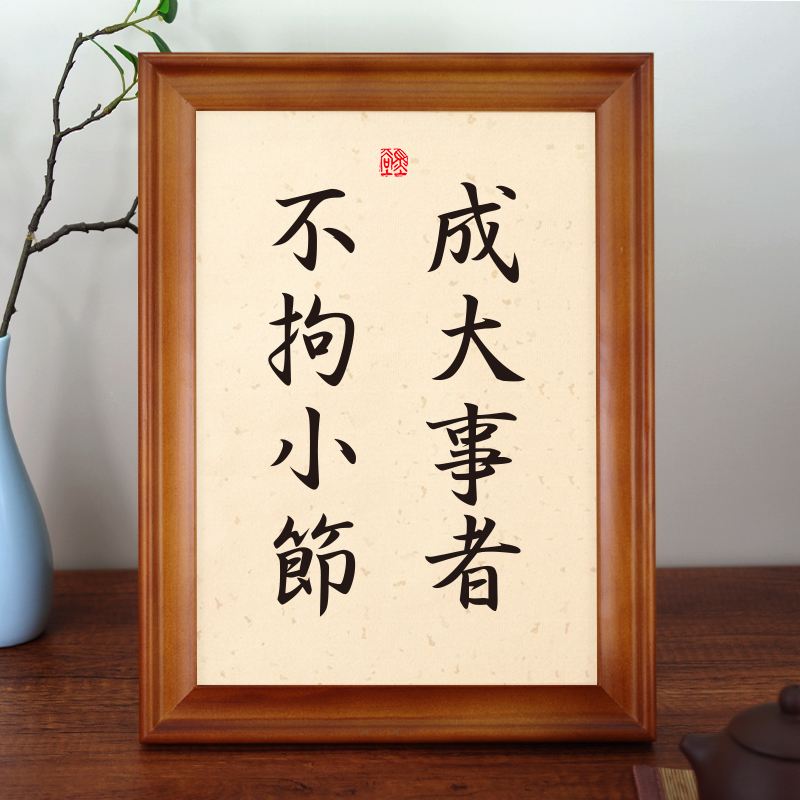 成大事者
不拘小節